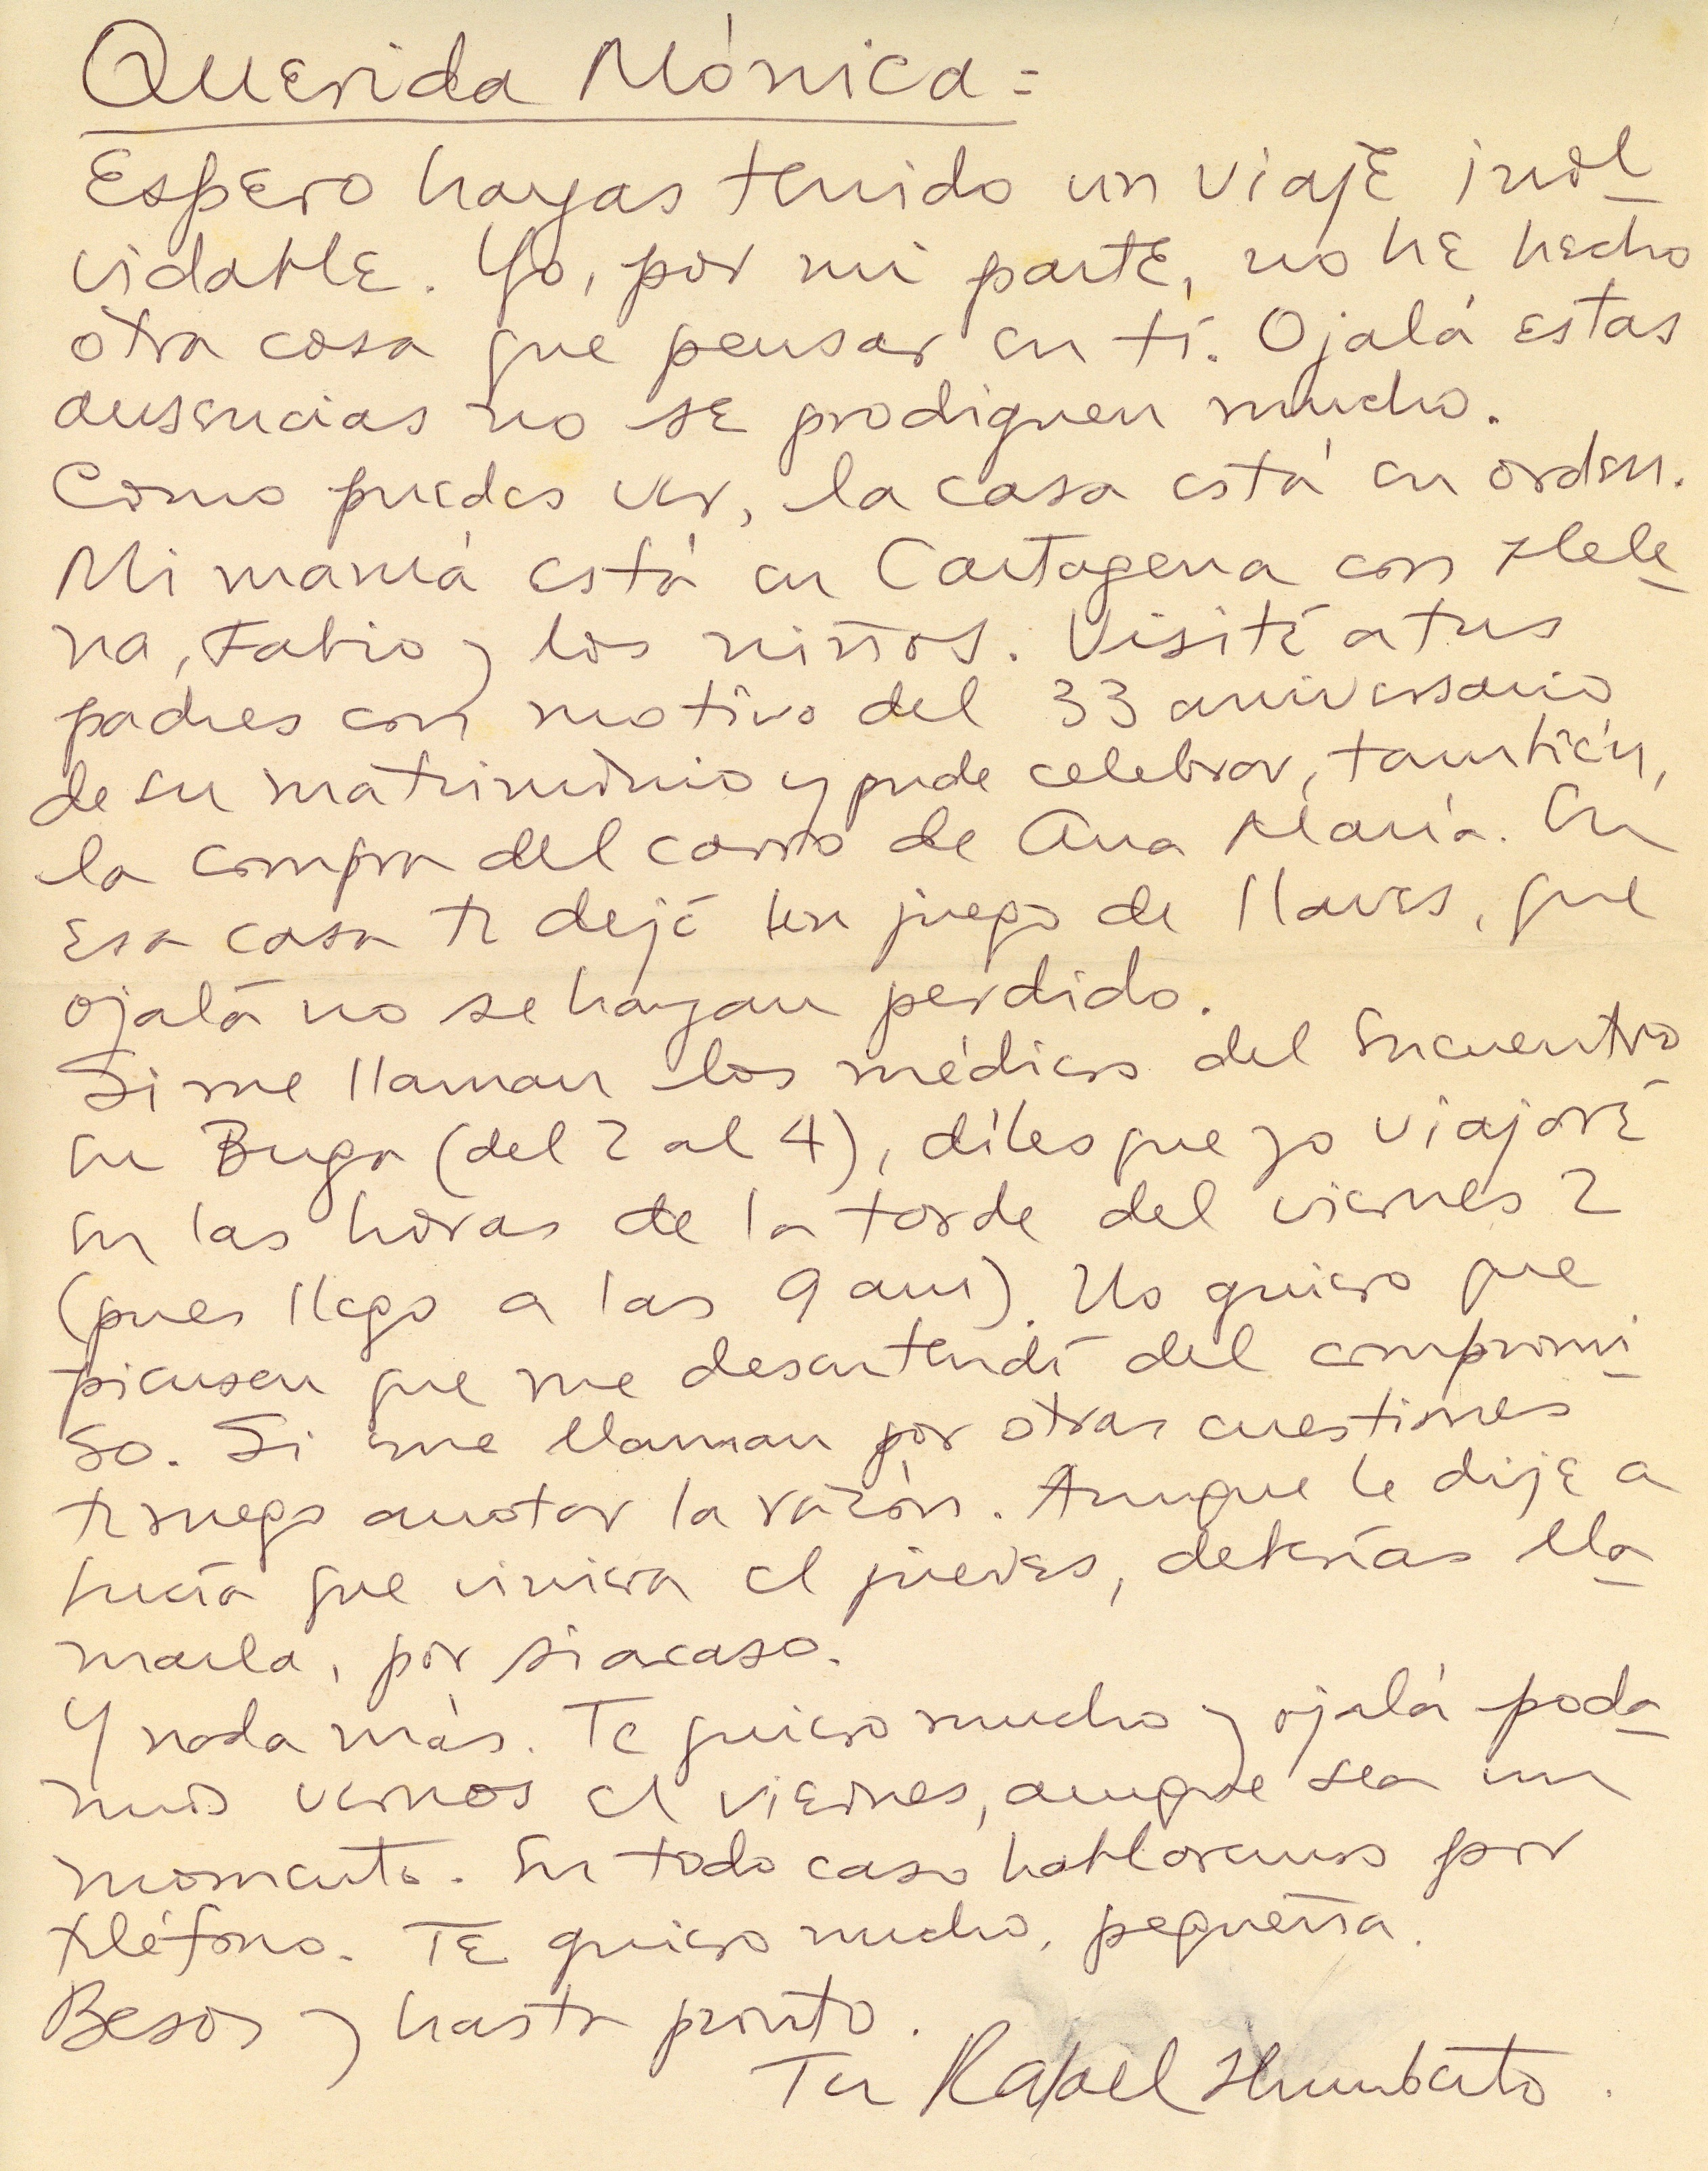 Querida Mónica:
Espero hayas tenido un viaje inol-
vidable. Yo, por mi parte, no he hecho
otra cosa que pensar en tí. Ojalá estas
ausencias no se prodiguen mucho.
Como puedes ver, la casa está en orden.
Mi mamá está en Cartagena con Hele-
na, Fabio y los niños. Visité a tus
padres con motivo del 33 aniversario
de su matrimonio y pude celebrar, también,
la compra del carro de Ana María. En
esa casa te dejé un juego de llaves, que
ojalá no se hayan perdido.
Si me llaman los médicos del Encuentro
en Buga (del 2 al 4), díles que yo viajaré
en las horas de la tarde del viernes 2
(pues llego a las 9 am). No quiero que
piensen que me desentendí del compromi-
so. Si me llaman por otras cuestiones
te ruego anotar la razón. Aunque le dije a
Lucía que viniera el jueves, deberías lla-
marla, por siacaso.
Y nada más. Te quiero mucho y ojalá poda-
mos vernos el viernes, aunque sea un
momento. En todo caso hablaremos por
teléfono. Te quiero mucho, pequeña.
Besos y hasta pronto.
Tu Rafael Humberto.